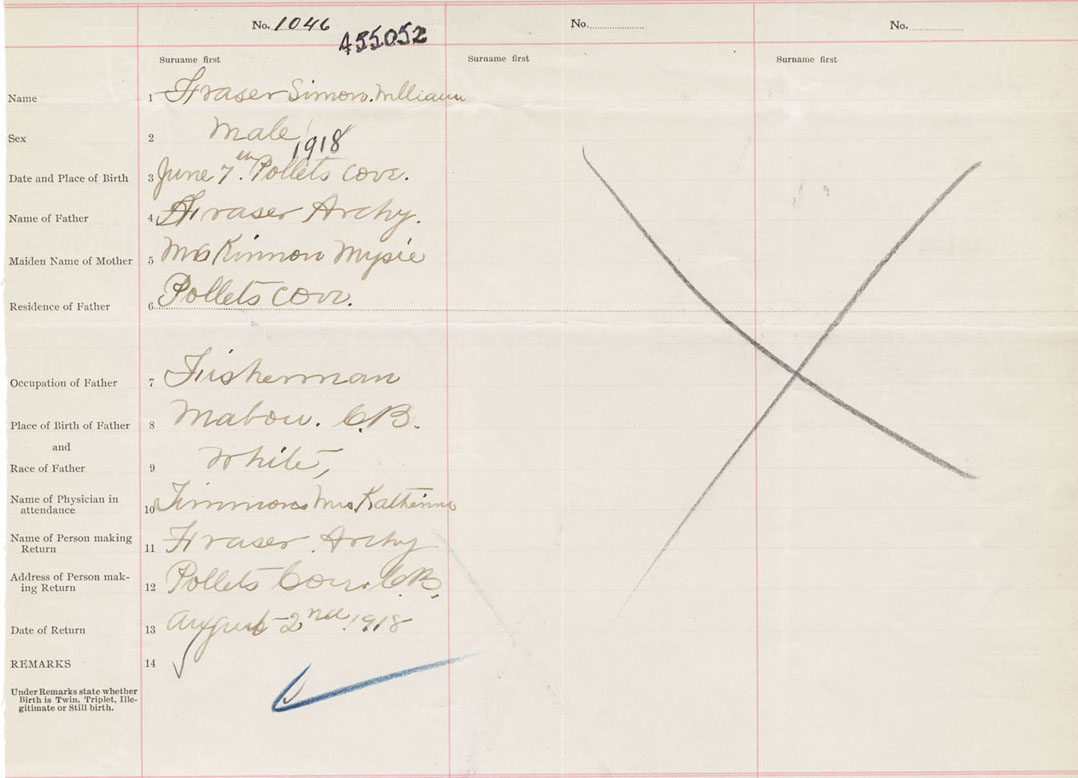 No. 1046
455052
No.
No.
Surname first
Surname first
Surname first
Name 1 Fraser Simon. William
Sex 2 Male
1918
Date and Place of Birth 3 June 7th. Pollets Cove.
Name of Father 4 Fraser Archy.
Maiden Name of Mother 5 McKinnon Mysie
Residence of Father 6 Pollets Cove.
Occupation of Father 7 Fisherman
Place of Birth of Father 8 Mabou. C.B.
and
Race of Father 9 White,
Name of Physician in
attendance 10 Timmons Mrs Katherine
Name of Person making
Return 11 Fraser Archy
Address of Person mak-
ing Return 12 Pollets Cove. C.B.
Date of Return 13 August 2nd 1918
REMARKS 14
Under Remarks state whether
Birth is Twin, Triplet, Ille-
gitimate or Still birth.